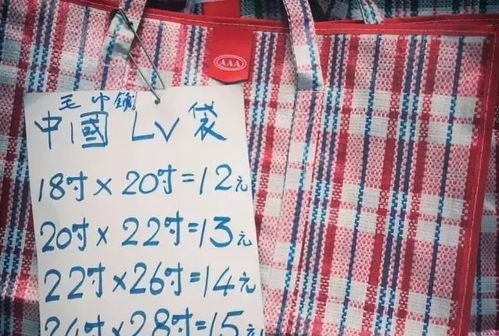 AAA
中國 LV 袋
18寸×20寸=12元
20寸×22寸=13元
22寸×26寸=14元
24寸×28寸=15元